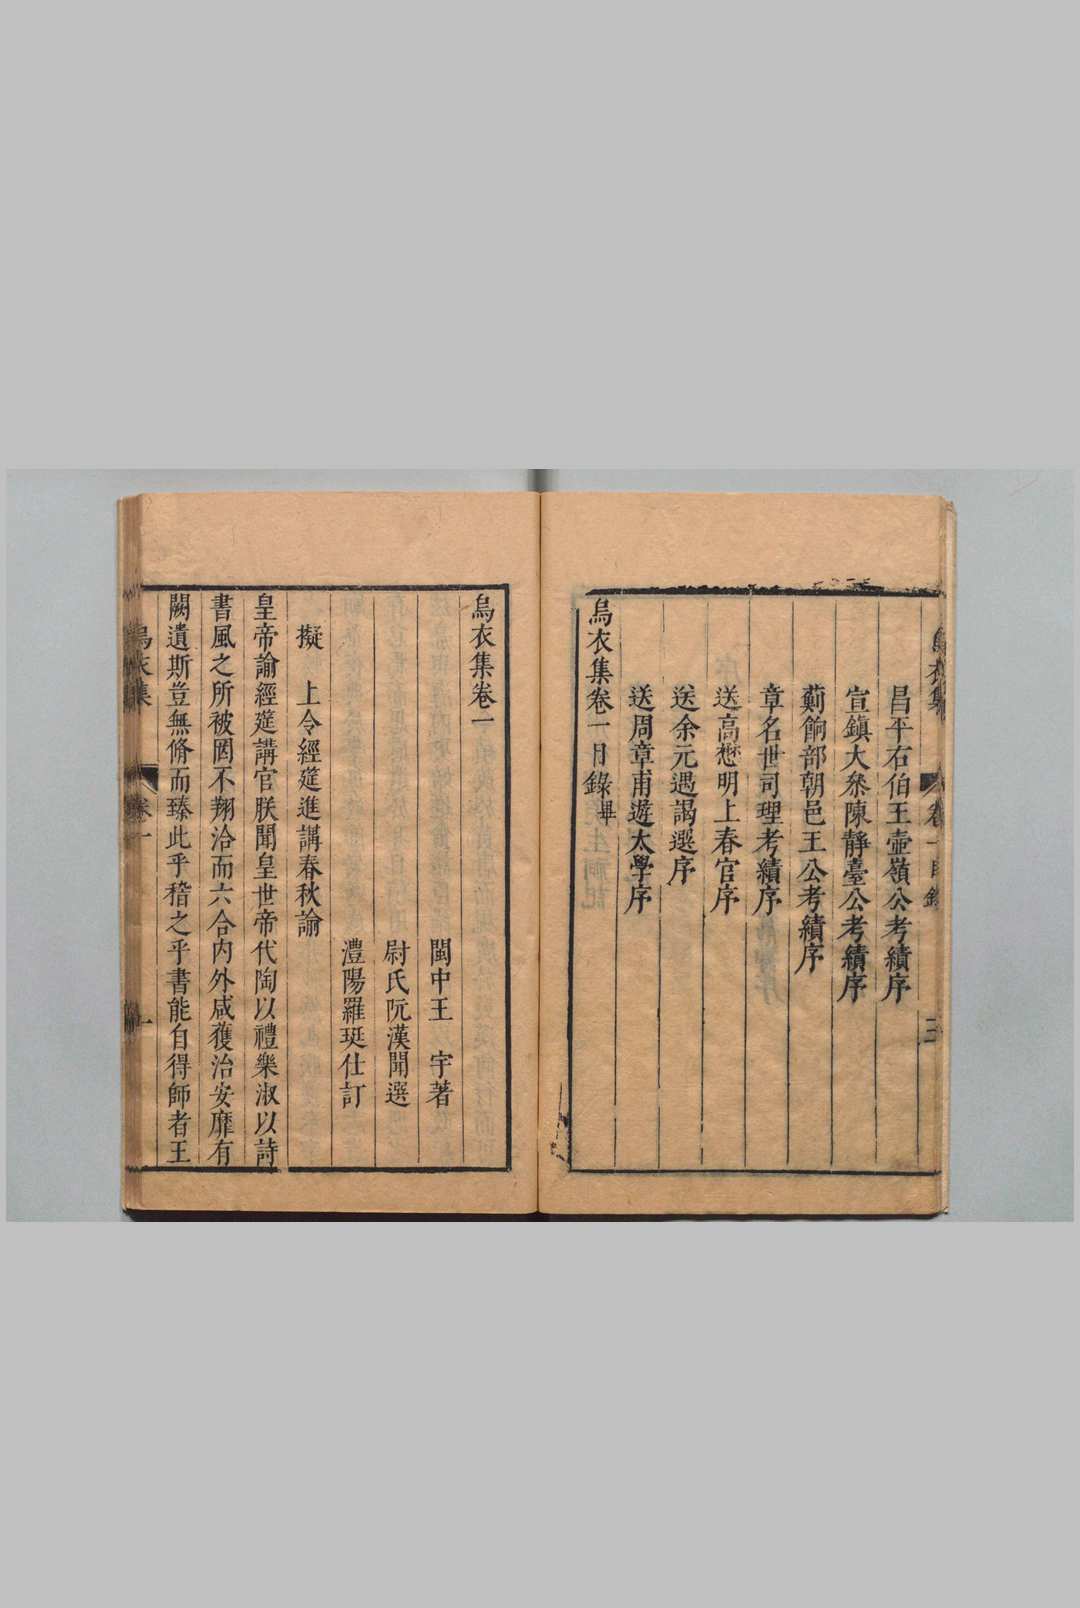 昌平右伯王壺嶺公考績序
宣鎮大叅陳靜臺公考績序
薊餉部朝邑王公考績序
章名世司理考績序
送高懋明上春官序
送余元遇謁選序
送周章甫遊太學序
烏衣集卷一目錄畢
烏衣集卷一
閩中王　宇著
尉氏阮漢聞選
澧陽羅珽仕訂
擬　上令經筵進講春秋諭
皇帝諭經筵講官朕聞皇世帝代陶以禮樂淑以詩
書風之所被罔不翔洽而六合內外咸獲治安靡有
闕遺斯豈無脩而臻此乎稽之乎書能自得師者王
烏衣集
卷一
一